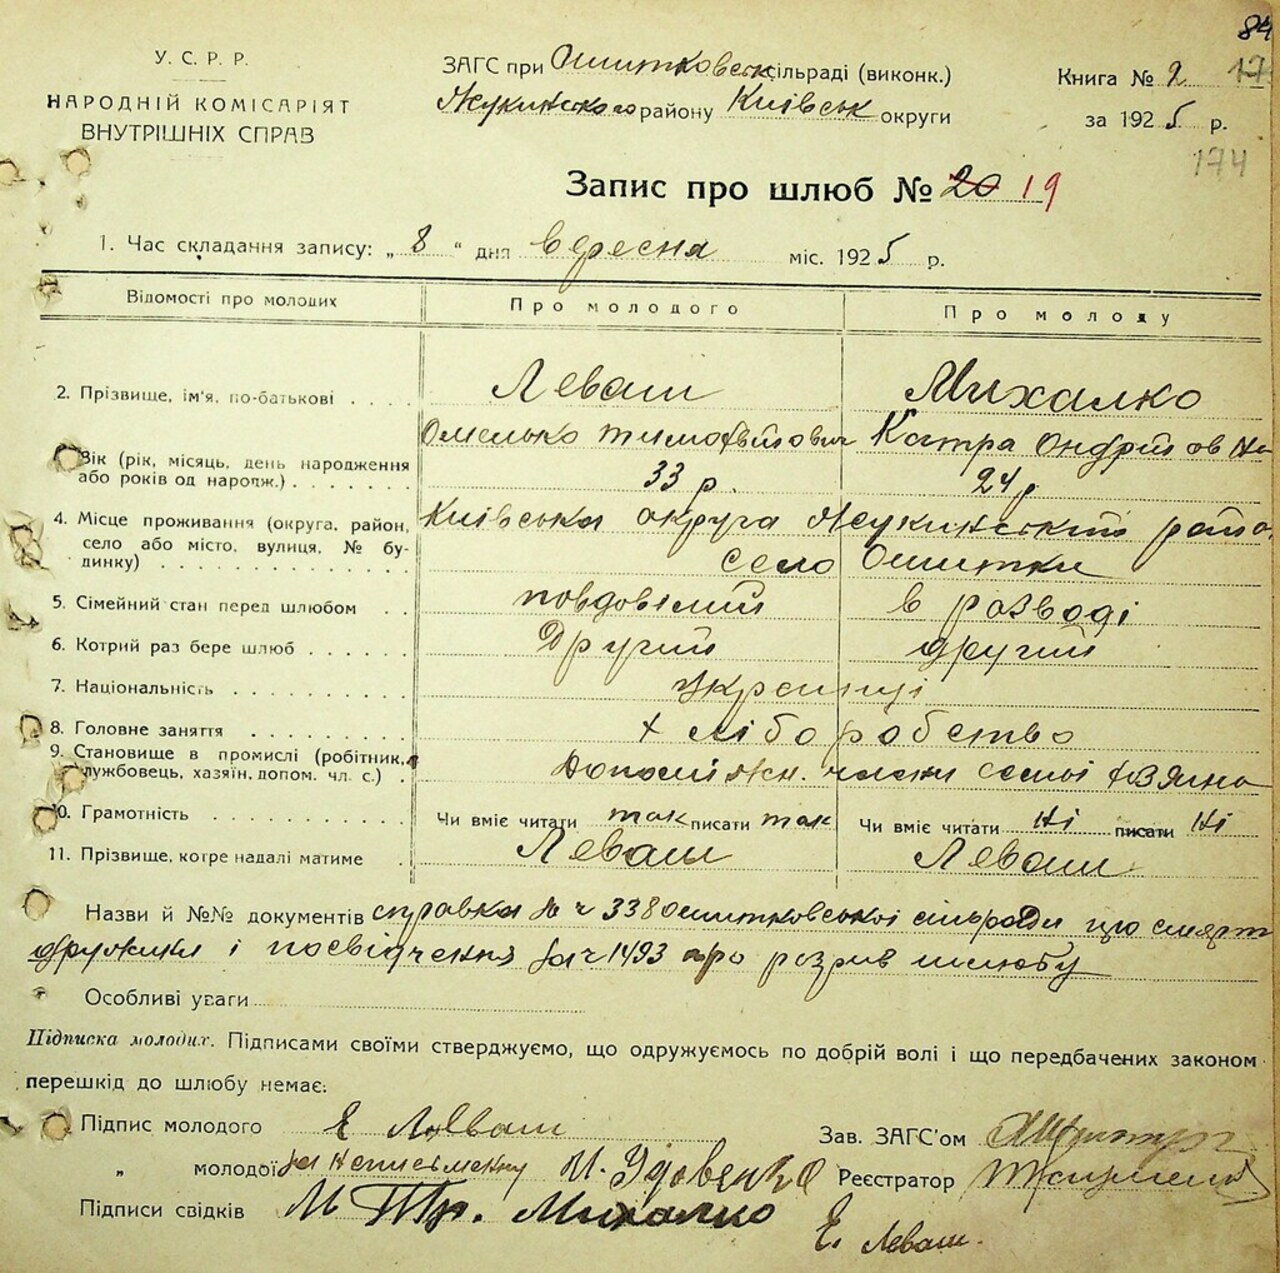 84
У. С. Р. Р.
НАРОДНІЙ КОМІСАРІЯТ
ВНУТРІШНІХ СПРАВ
ЗАГС при Ошитковськ сільраді (виконк.)
Жукинського району Київськ округи
Книга № 2 17
за 1925 р.
174
Запис про шлюб № 20 19
1. Час складання запису: „ 8 “ дня вересня міс. 1925 р.
Відомості про молодих
Про молодого
Про молоду
2. Прізвище, ім'я, по-батькові
Леваш
Михалко
Омелько тимофійович
Катра Ондрийовна
Вік (рік, місяць, день народження
або років од нарож.)
33 р.
24 р
4. Місце проживання (округа, район,
село або місто, вулиця, № бу-
динку)
Київська округа Жукинський райо
село Ошитки
5. Сімейний стан перед шлюбом
повдовілий
в розводі
6. Котрий раз бере шлюб
Другий
другий
7. Національність
Українці
8. Головне заняття
хліборобство
9. Становище в промислі (робітник,
службовець, хазяїн, допом. чл. с.)
Допоміжн. члени семї хозяина
10. Грамотність
Чи вміє читати так писати так
Чи вміє читати Ні писати Ні
11. Прізвище, котре надалі матиме
Леваш
Леваш
Назви й №№ документів справка за ч 338 Ошитковської сільради про смерт
дружини і посвідчення за ч 1493 про розрив шлюбу
Особливі уваги
Підписка молодих. Підписами своїми стверджуємо, що одружуємось по добрій волі і що передбачених законом
перешкід до шлюбу немає:
Підпис молодого Е Леваш
Зав. ЗАГС'ом
„ молодої за неписьменну И. Удовенко
Реєстратор
Підписи свідків М Михалко
Е. Леваш.